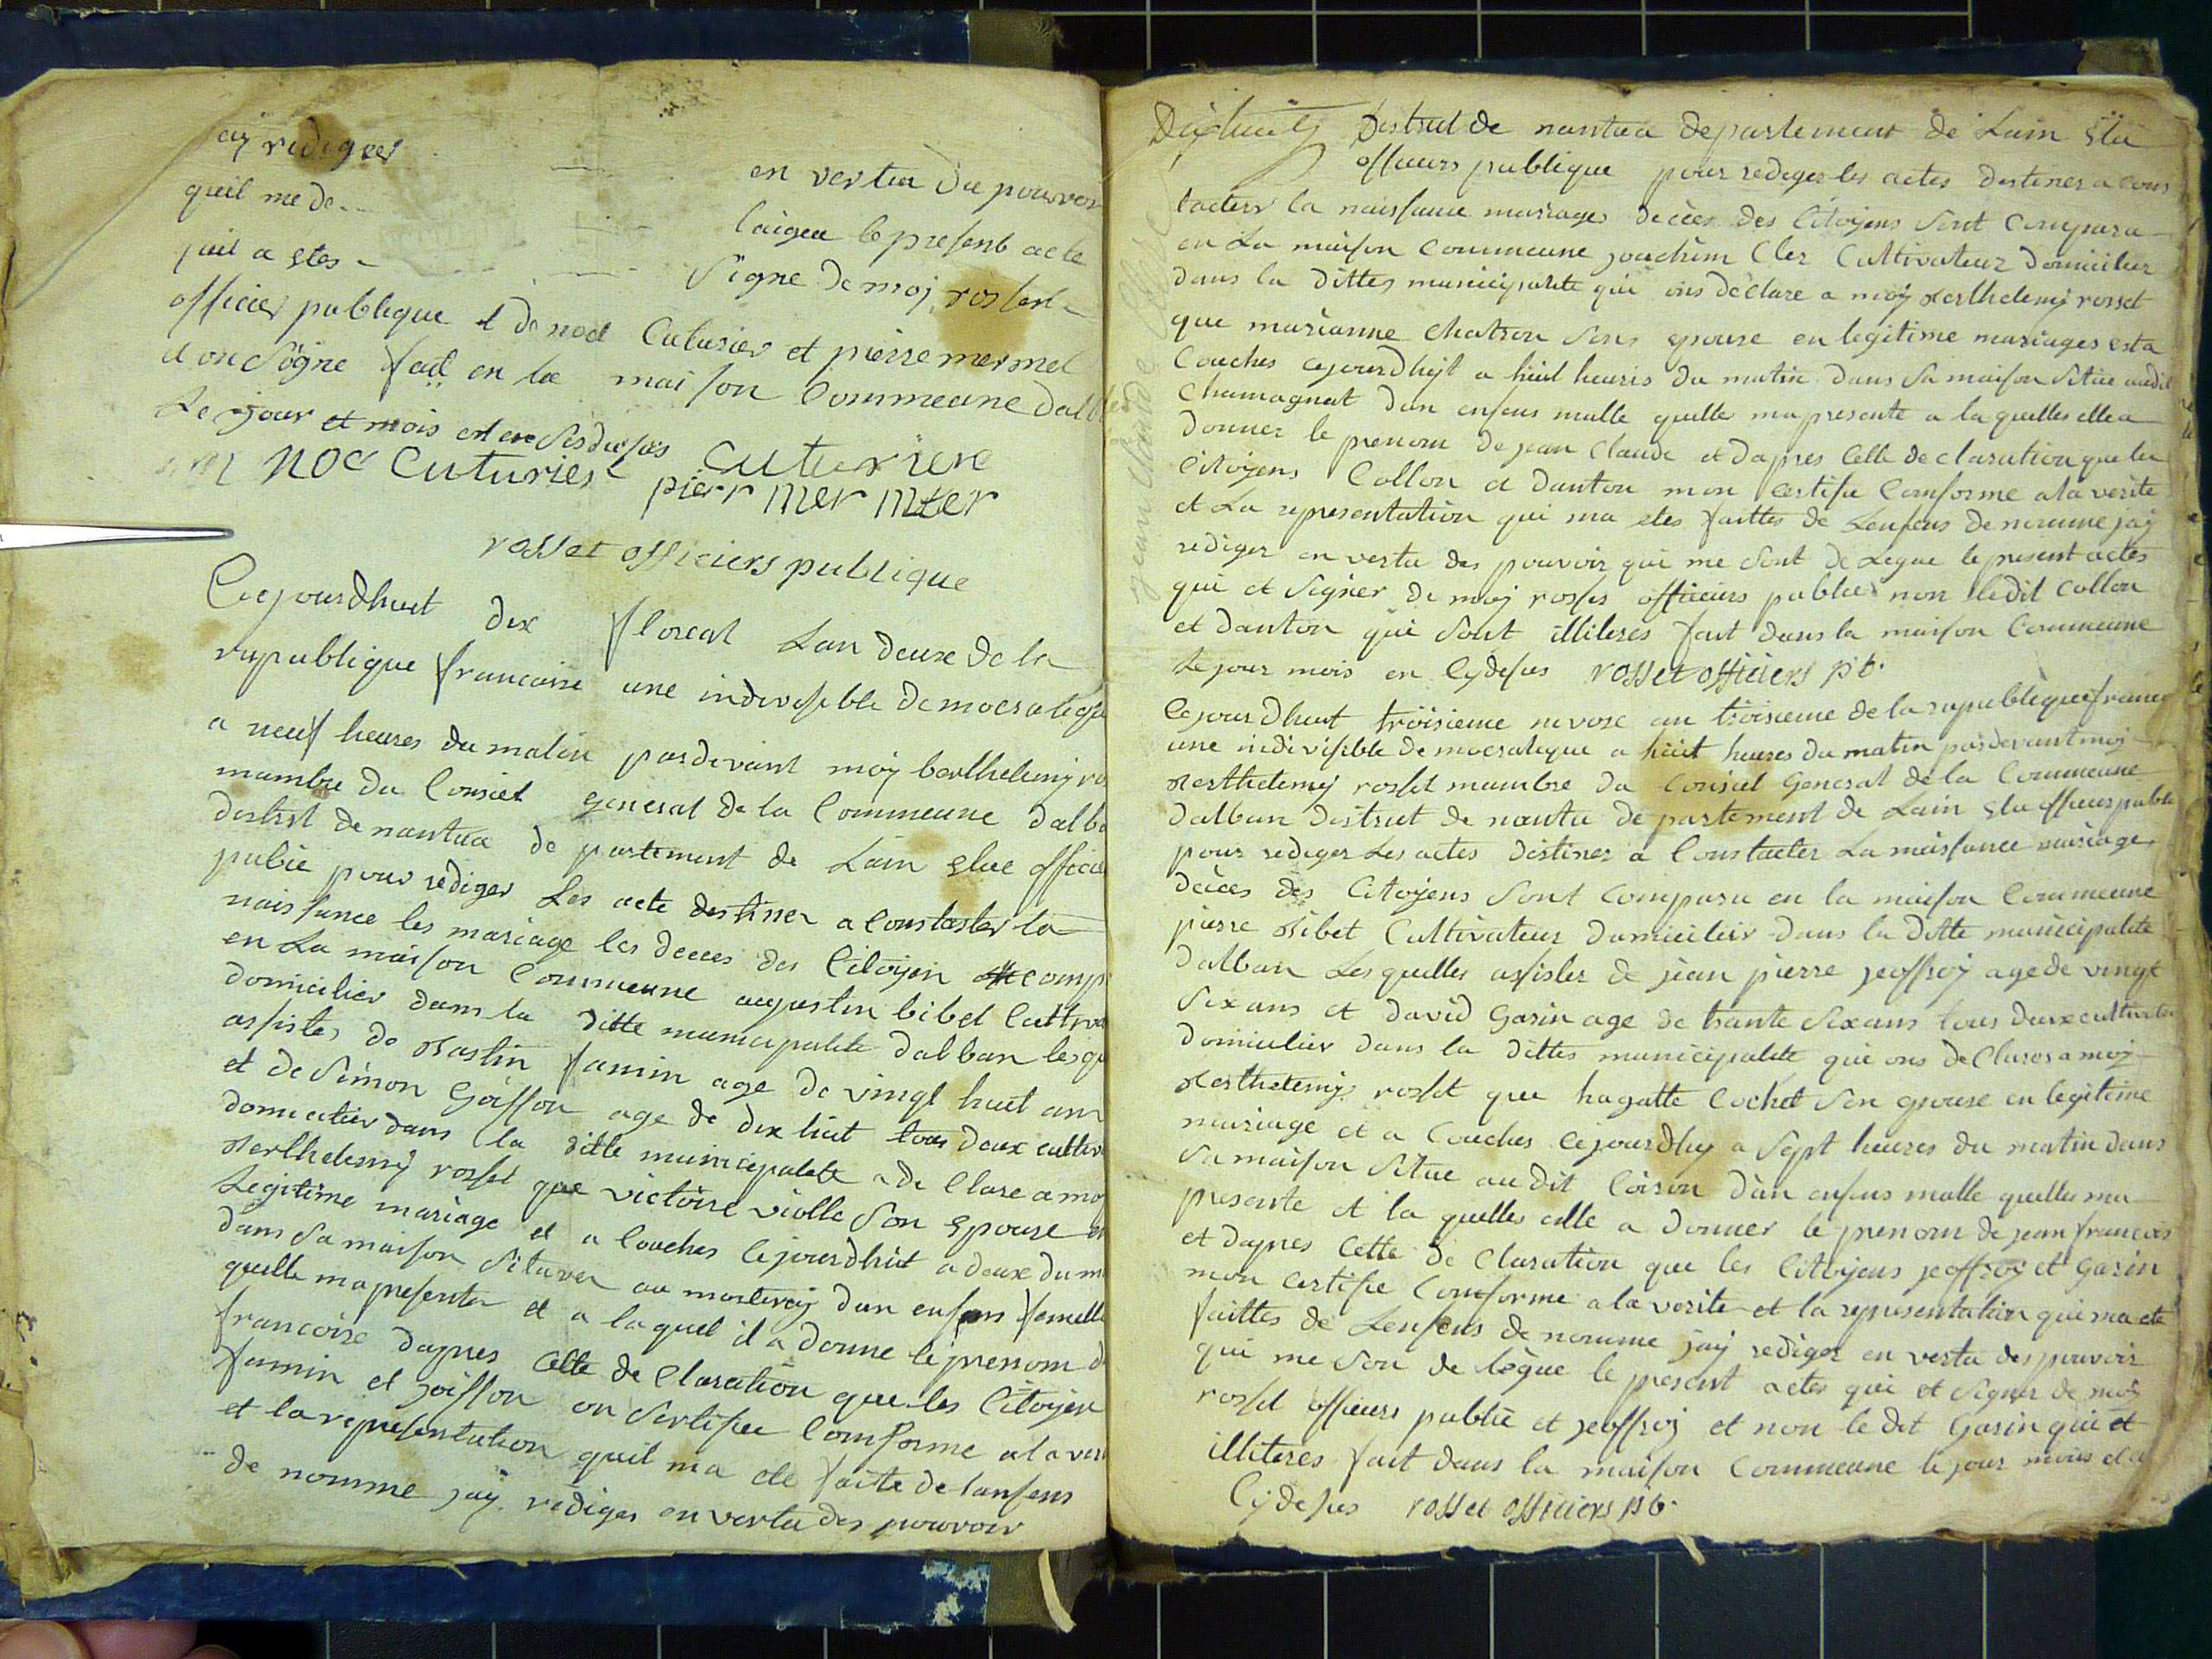 ay rediger
en vertu du pouvoir
quil me de
laigue le present acte
quil a etes
Signe de moy rosset
officier publique et de noel Cuturier et pierre mermet
et on Signe fait en la maison Commeune dalb
Le jour et mois et en Sis dessus
noel Cuturier Cuturier
pierr mer mter
rosset officiers publique
Cejourdhuit dix floreal Lan deux de la
republique francaise une indivisible democratique
a neuf heures du matin pardevant moy berthelemy ro
mambre du Conciel general de la Commeune dalba
destrit de nantua de partement de Lain elue officie
pubic pour rediger Les acte destiner a Constaster la
naissance les mariage les deces des Citoyen comp
en La maison Commeune augustin bibet Cultiva
domicilier dans la ditte municipalite dalban lesqu
assistes de Bastin famin age de vingt huit ans
et de Simon Goiffon age de dix huit tous deux cultiv
domicilier dans la ditte municipalite a de Clare a moy
Berthelemy rosset que victoire violle Son epouse en
Legitime mariage et a Couches Cejourdhuit a deux du m
dans Sa maison Situer au mortarey dun enfans femelle
quelle ma presenter et a laquel il a donne le prenom d
francoise dapres Cette de Claration que les Citoyen
famin et goiffon on Sertifier Comforme a la veri
et la representation quil ma ete faite de lanfens
de nomme jay rediger en vertu des pouvoir
Distrut de nantua departement de Lain Elu
officiers publique pour rediger les actes destiner a Cons
tacter la naissance mariages deces des Citoyens Sont Compara
en La maison Commeune joachim Cler Cultivateur domicilier
dans la dittes municipalite qui ons declare a moy Berthelemy rosset
que marianne Chatron Sons epouse en legitime mariages esta
Couches cejourdhuit a huit heuris du matin dans Sa maison Situe audit
Chamagnat dun enfans malle quelle ma presente a la quelles ellea
donner le prenom de jean Claude et dapres Cette declaration que les
Citoyens Collon et danton mon Certifie Comforme a la verite
et La representation qui ma etes faittes de Lenfens de nomme jay
rediger en vertu des pouvoir qui me Sont de Legue le present actes
qui et Signer de moy rosset officiers publics non ledit Collon
et danton qui Sont illiteres fait dans la maison Commeune
Le jour mois en Cy desus rosset officiers pb.
jean Claude Clerc
Cejourdhuit troisieme nivose an troisieme de la republique franc
une indivisible democratique a huit heures du matin pardevant moy
Berthelemy rosset mambre du Conseil General de la Commeune
dalban Distrut de nantu de partement de Lain Elu officiers public
pour rediger Les actes destiner a Constacter La naissance mariage
deces des Citoyens Sont Comparu en la maison Commeune
pierre Bibet Cultivateur domicilier dans la ditte municipalite
dalban Les quelles assister de jean pierre jeoffroy age de vingt
Six ans et david Garin age de trante Six ans tous deux cultivateur
domicilier dans la dittes municipalite qui ons de Clares a moy
Berthelemy rosset que hagatte Cochet Son epouse en legitime
mariage et a Couches Cejourdhuy a Sept heures du matin dans
Sa maison Situe au dit Coiron dun enfans malle quelles ma
presente et la quelles elle a donner le prenom de jean francois
et dapres Cette de Claration que les Citoyens jeoffroy et Garin
mon Certifie Comforme a la verite et la representation qui ma ete
faittes de Lenfens de nomme jay rediger en vertu des pouvoir
qui me Son de legue le present actes qui et Signer de moy
rosset officiers public et jeoffroy et non le dit Garin qui et
illiteres fait dans la maison Commeune le jour mois et a
Cy desus rosset officiers pb.